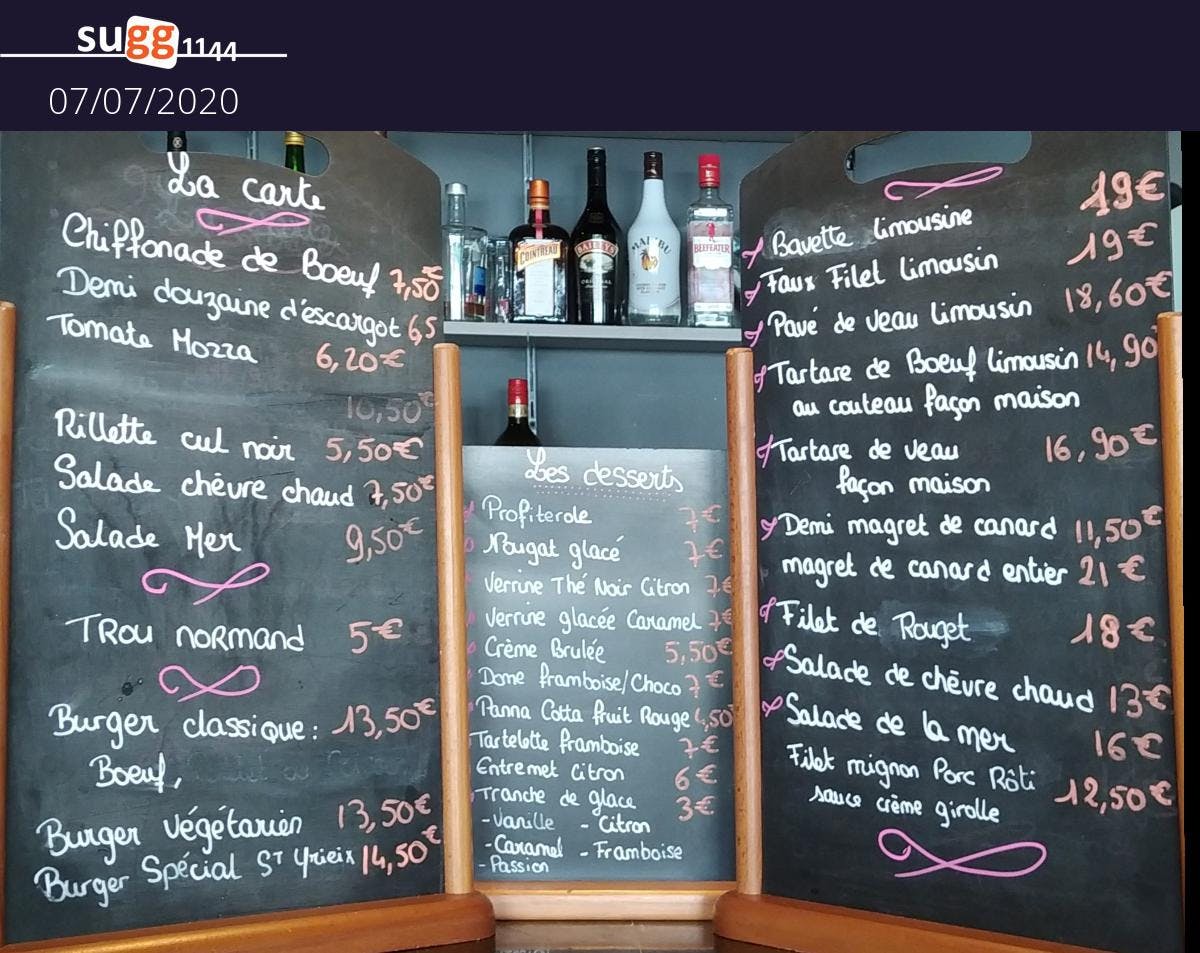 sugg1144
07/07/2020
La carte
Chiffonade de Boeuf 7,50€
Demi douzaine d'escargot 6,5
Tomate Mozza 6,20€
10,50€
Rillette cul noir 5,50€
Salade chèvre chaud 7,50€
Salade Mer 9,50€
TROU NORMAND 5€
Burger classique: 13,50€
Boeuf,
Burger végétarien 13,50€
Burger Spécial ST Yrieix 14,50€
COINTREAU
BAILEYS
MALIBU
BEEFEATER
Les desserts
Profiterole 7€
Nougat glacé 7€
Verrine Thé Noir Citron 7€
Verrine glacée Caramel 7€
Crème Brulée 5,50€
Dome framboise/Choco 7€
Panna Cotta fruit Rouge 4,50
Tartelette framboise 7€
Entremet Citron 6€
Tranche de glace 3€
-Vanille - Citron
-Caramel - Framboise
-Passion
19€
Bavette limousine
Faux Filet limousin 19€
Pavé de veau limousin 18,60€
Tartare de Boeuf limousin 14,90
au couteau façon maison
Tartare de veau 16,90€
façon maison
Demi magret de canard 11,50€
magret de canard entier 21€
Filet de Rouget 18€
Salade de chèvre chaud 13€
Salade de la mer 16€
Filet mignon Porc Rôti
sauce crème girolle 12,50€